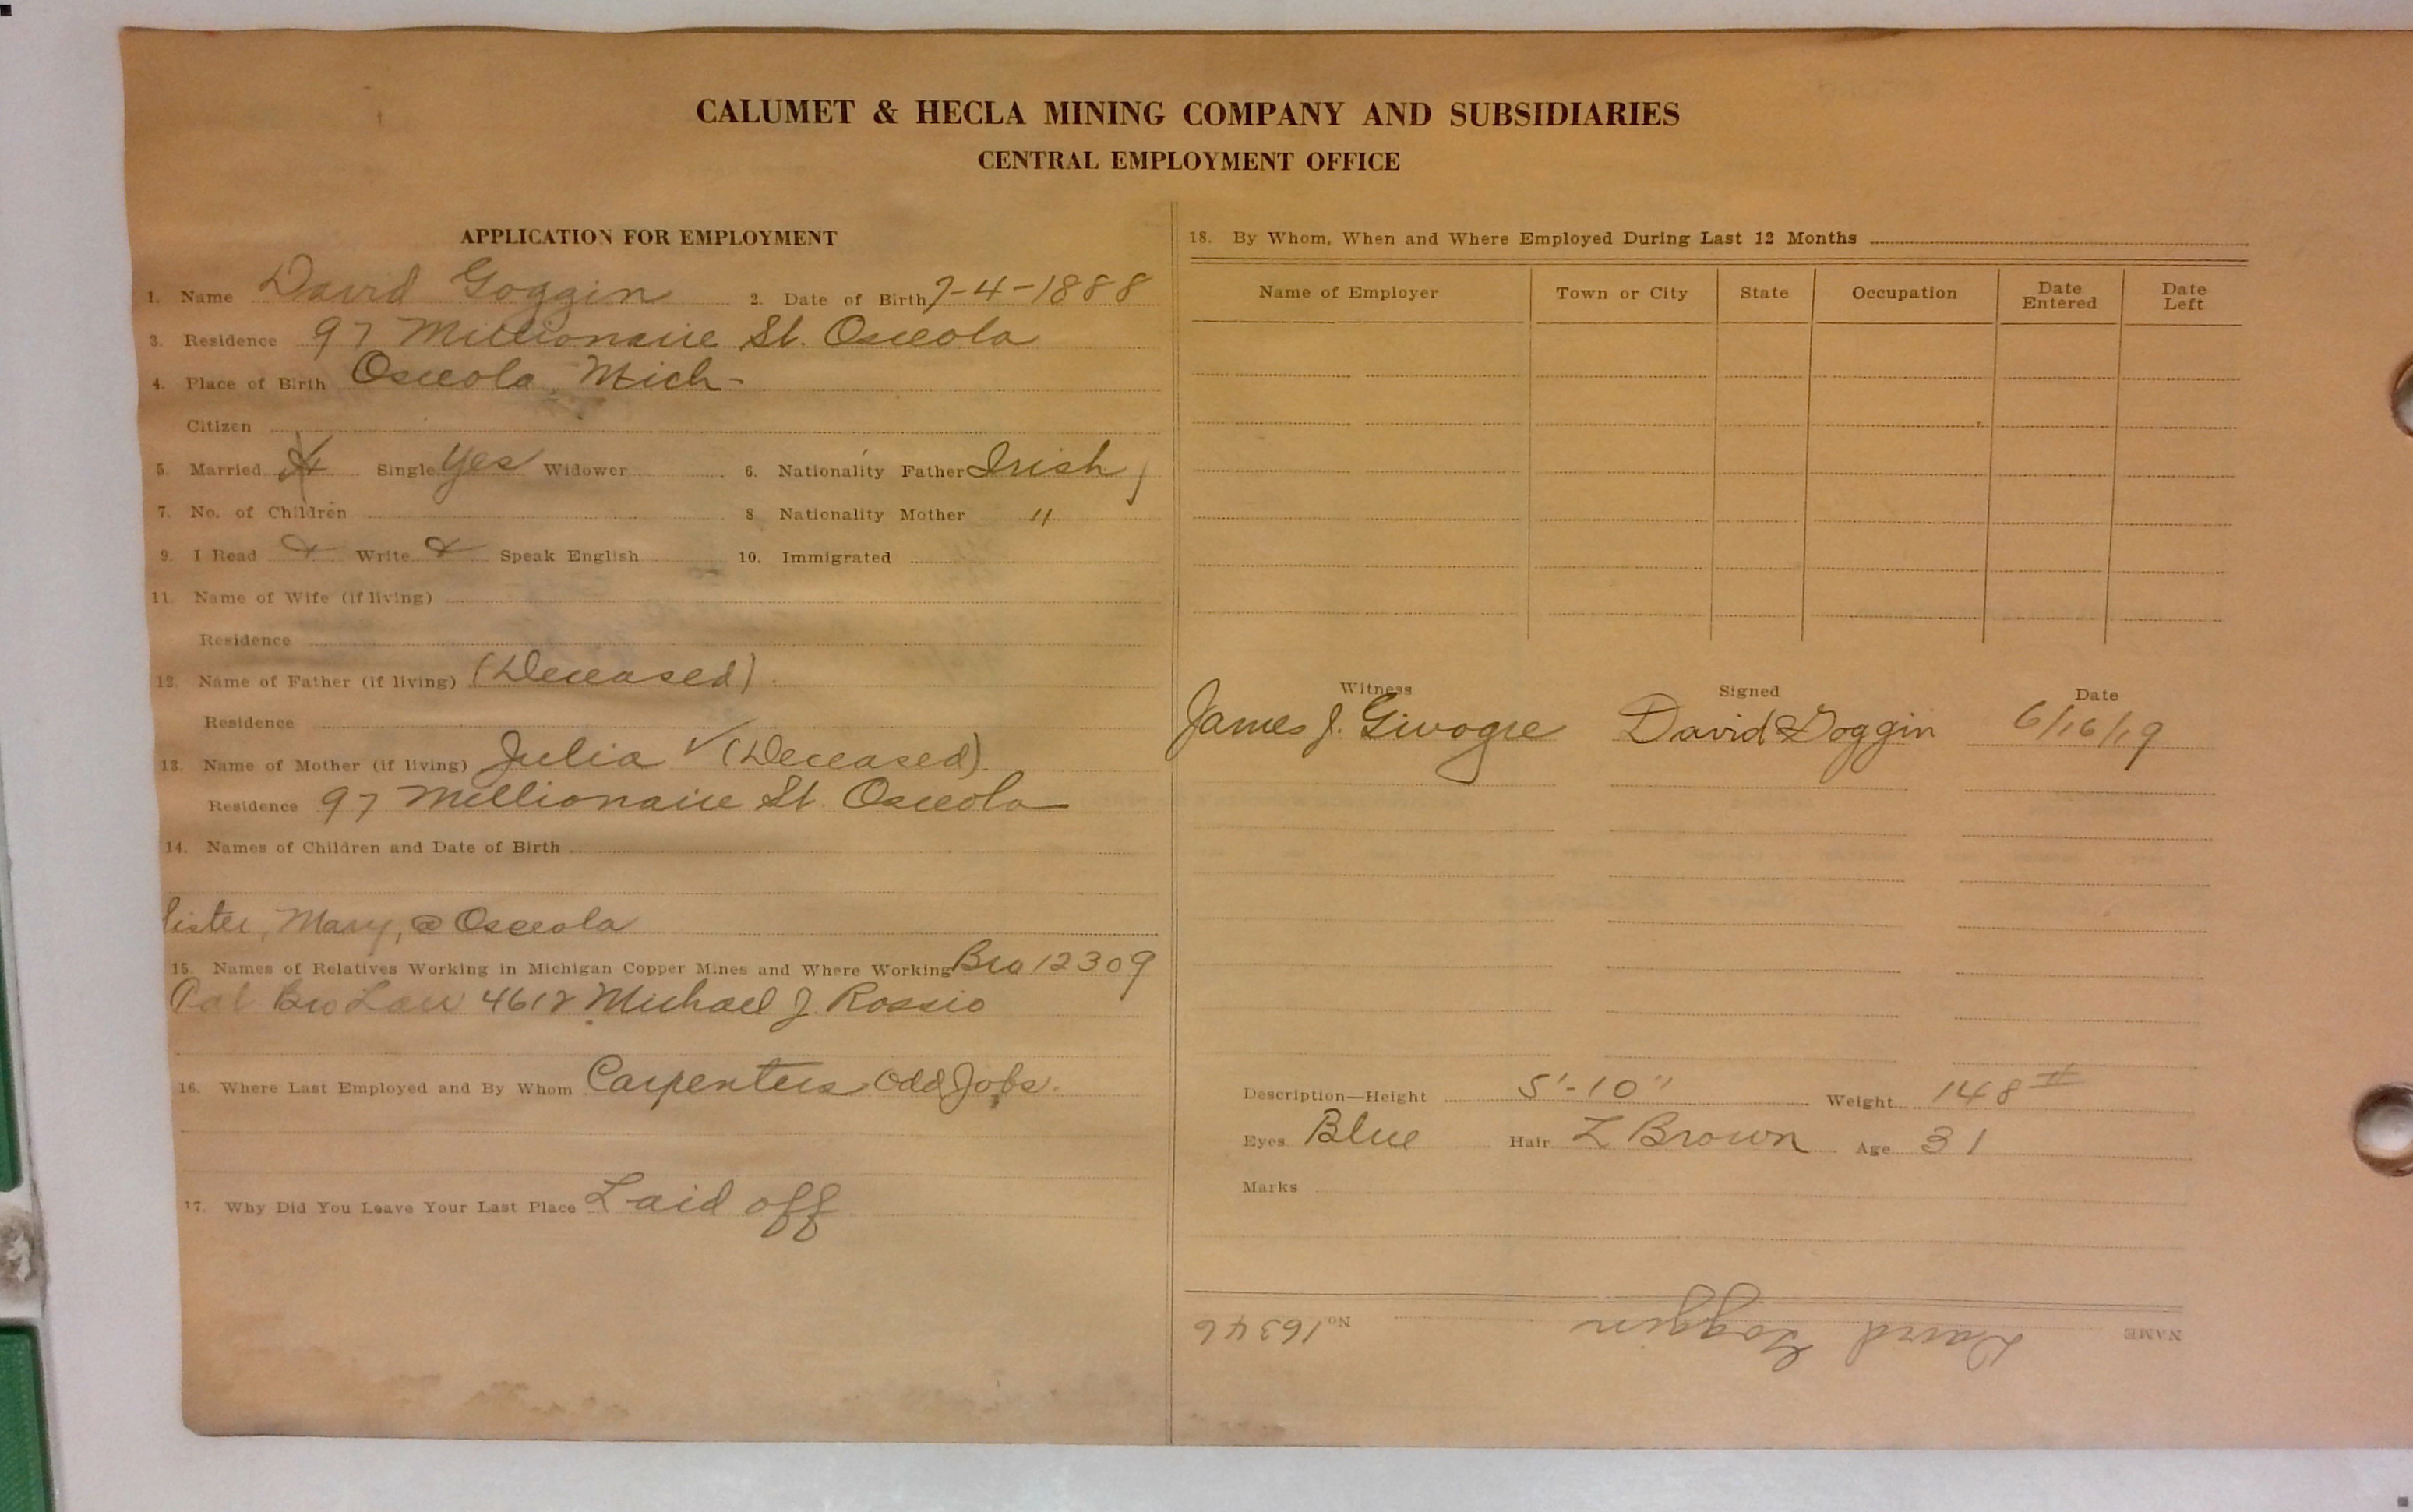 CALUMET & HECLA MINING COMPANY AND SUBSIDIARIES
CENTRAL EMPLOYMENT OFFICE
APPLICATION FOR EMPLOYMENT
1. Name David Goggin 2. Date of Birth 7-4-1888
3. Residence 97 Millionaire St. Osceola
4. Place of Birth Osceola, Mich-
Citizen
5. Married Single Yes Widower 6. Nationality Father Irish
7. No. of Children 8 Nationality Mother "
9. I Read Write Speak English 10. Immigrated
11. Name of Wife (if living)
Residence
12. Name of Father (if living) (Deceased)
Residence
13. Name of Mother (if living) Julia ✓ (Deceased).
Residence 97 Millionaire St. Osceola
14. Names of Children and Date of Birth
Sister, Mary, @ Osceola
15. Names of Relatives Working in Michigan Copper Mines and Where Working Bro 12309
Bro Law 4612 Michael J. Rossio
16. Where Last Employed and By Whom Carpenters Odd Jobs.
17. Why Did You Leave Your Last Place Laid off
18. By Whom, When and Where Employed During Last 12 Months
Name of Employer Town or City State Occupation Date Entered Date Left
Witness Signed Date
James J. David Goggin 6/16/19
Description—Height 5'-10" Weight 148 #
Eyes Blue Hair L Brown Age 31
Marks
NAME David Goggin No 16346